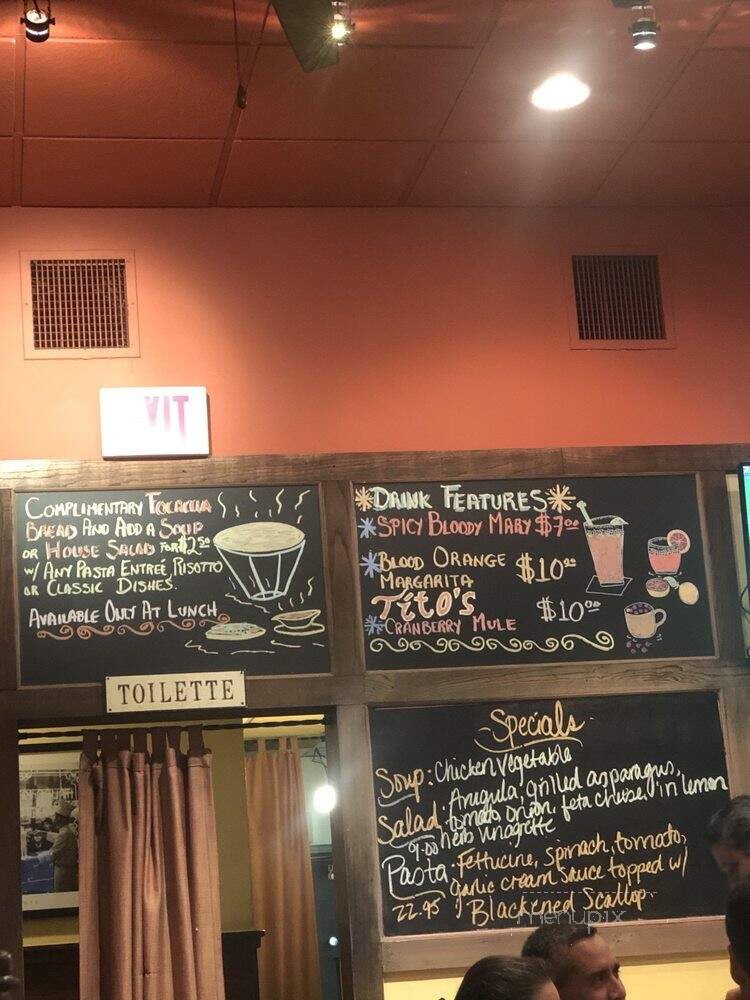 EXIT
COMPLIMENTARY FOCACCIA
BREAD AND ADD A SOUP
OR HOUSE SALAD FOR $2.50
W/ ANY PASTA ENTREÉ, RISOTTO
OR CLASSIC DISHES.
AVAILABLE ONLY AT LUNCH
DRINK FEATURES
SPICY BLOODY MARY $7.00
BLOOD ORANGE
MARGARITA $10.00
TITO'S
CRANBERRY MULE $10.00
TOILETTE
Specials
Soup: Chicken Vegetable
Salad: Arugula, grilled asparagus,
tomato, onion, feta cheese, in lemon
9.00 herb vinagrette
Pasta: fettucine, spinach, tomato,
garlic cream sauce topped w/
22.95 Blackened Scallop
menupix